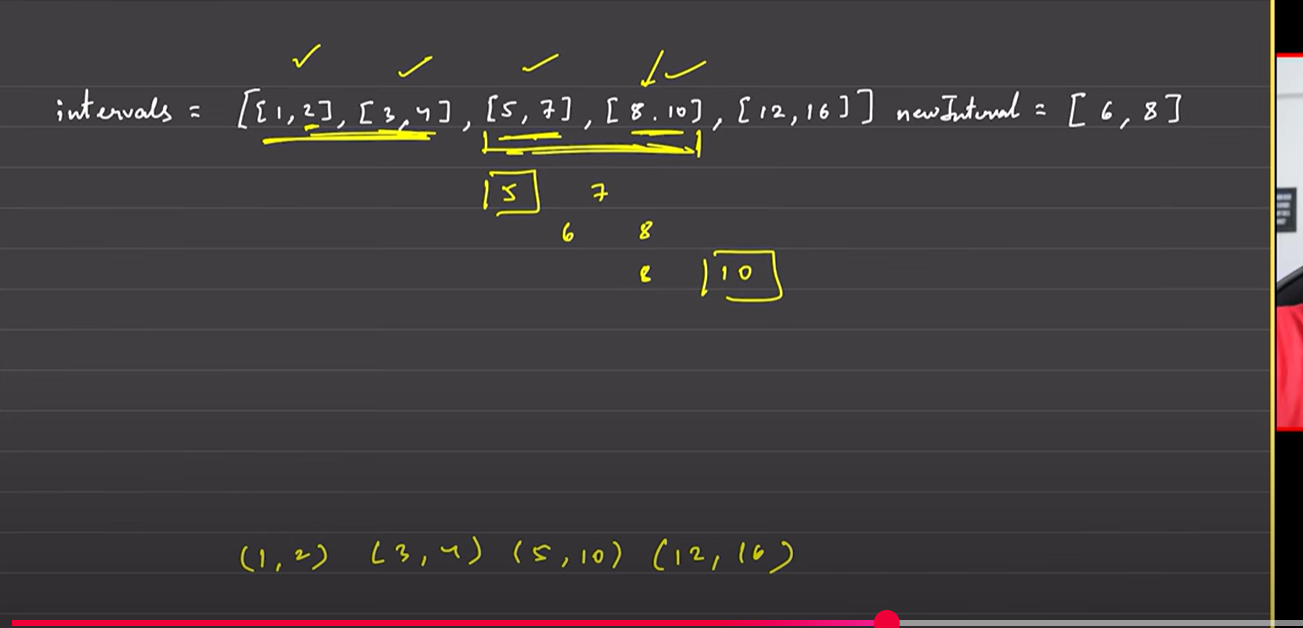 intervals = [[1,2], [3,4], [5,7], [8.10], [12,16]] newInterval = [6,8]
5 7
6 8
8 10
(1,2) (3,4) (5,10) (12,16)